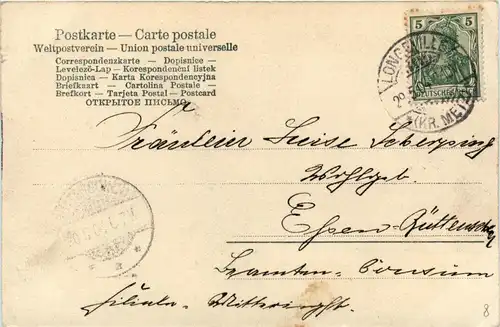 Postkarte — Carte postale
Weltpostverein – Union postale universelle
Correspondenzkarte – Dopisnice –
Levelezö-Lap – Korespondenční lístek
Dopisnica – Karta Korespondencyjna
Briefkaart – Cartolina Postale –
Brefkort – Tarjeta Postal – Postcard
ОТКРЫТОЕ ПИСЬМО
5 5
DEUTSCHES
LONGEVILLE
(KR. METZ)
Fräulein Luise Scherping
Wohlgeb.
Essen-Rüttensch
Beamten-Consum
Filiale-
8